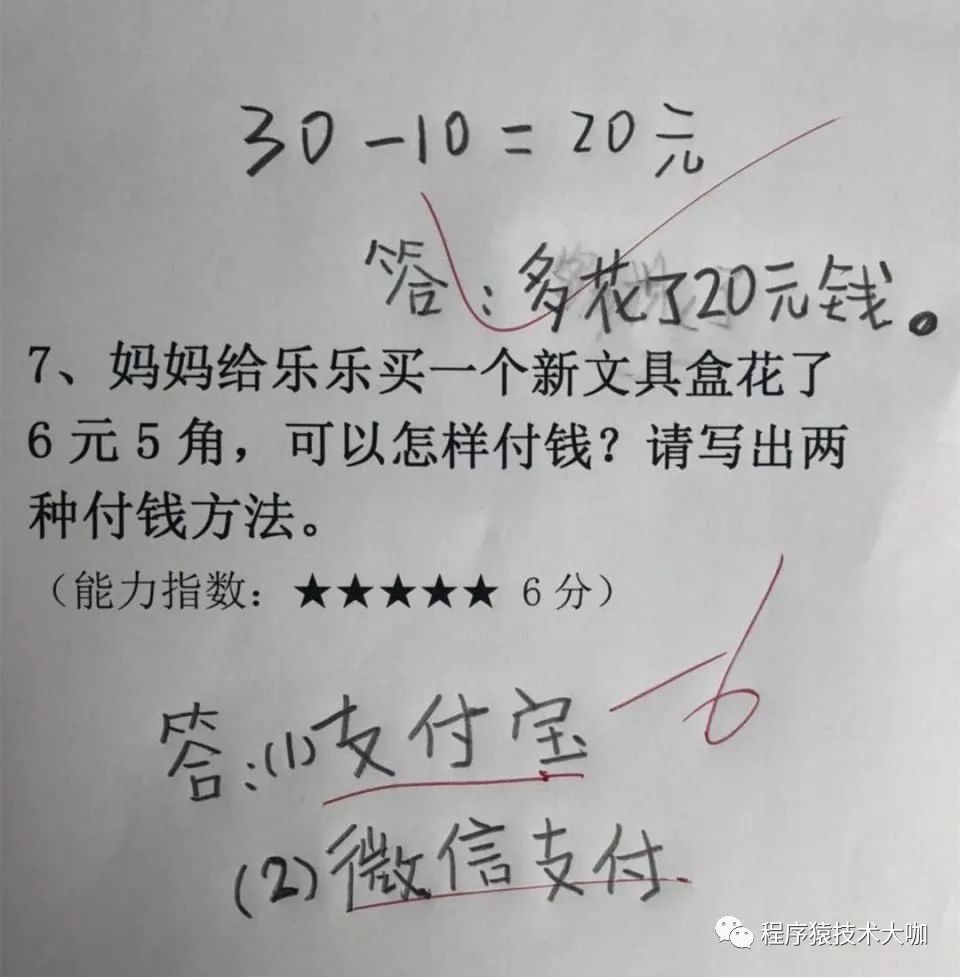 30-10=20元
答:多花了20元钱。
7、妈妈给乐乐买一个新文具盒花了
6元5角，可以怎样付钱？请写出两
种付钱方法。
（能力指数：★★★★★ 6分）
-6
答:(1)支付宝
(2)微信支付.
程序猿技术大咖